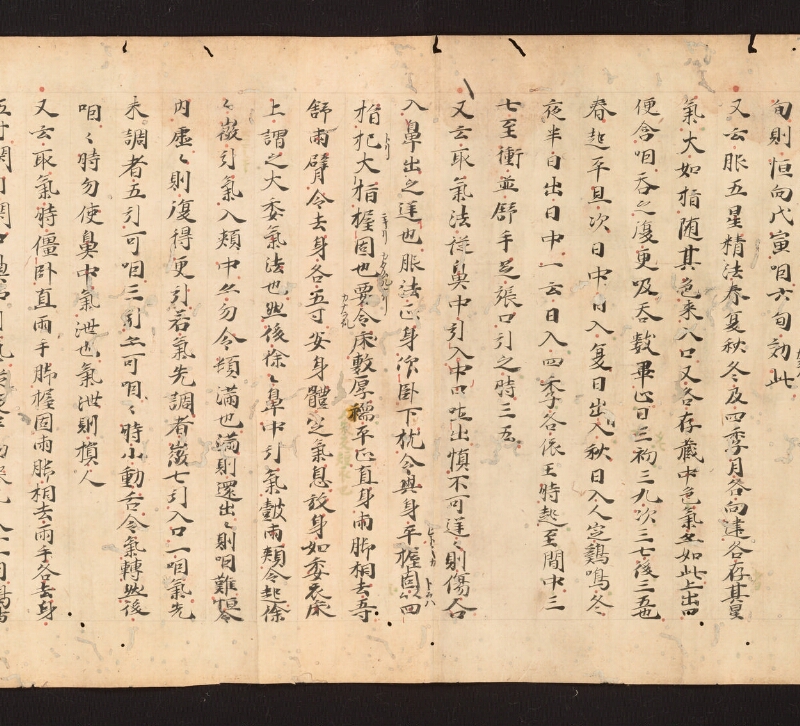 旬則恒向戊寅咽六旬効此
又云服五星精法春夏秋冬及四季月各向建各存其星
氣大如指随其色来入口又各存藏中色氣如此上出口
便含咽吞之復更吸吞数畢止日三初三九次三七後三五也
春起平旦次日中日入夏日出入秋日入人定鷄鳴冬
夜半日出日中一云日入四季各依王時起至間中三
七至衝並舒手足張口引之時三五
又云取氣法従鼻中引入中口吐出慎不可逆〻則傷合
入鼻出之逆也服法正身仰卧下枕令與身平握固〻四
指把大指握固也要令床敷厚穤平正直身兩脚相去五寸
舒兩臂令去身各五寸安身體定氣息設身如委衣床
上謂之大委氣法也然後徐〻鼻中引氣皷兩頬令起徐
〻微引氣入頬中勿令頬満也満則還出〻則咽難恒令
内虚〻則復得更引若氣先調者微七引入口一咽氣先
未調者五引可咽三引可咽〻時小動舌令氣轉然後
咽〻時勿使鼻中氣泄也氣泄則損人
又云取氣時僵卧直兩手脚握固兩脚相去兩手各去身